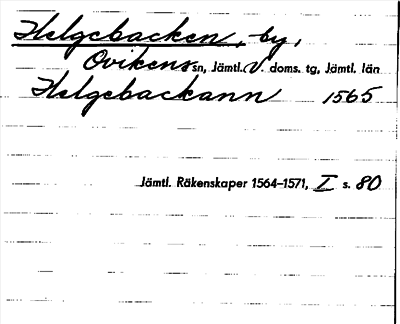 Helgebacken, by,
Ovikens sn, Jämtl. V. doms. tg, Jämtl. län
Helgebackann 1565
Jämtl. Räkenskaper 1564–1571, I s. 80